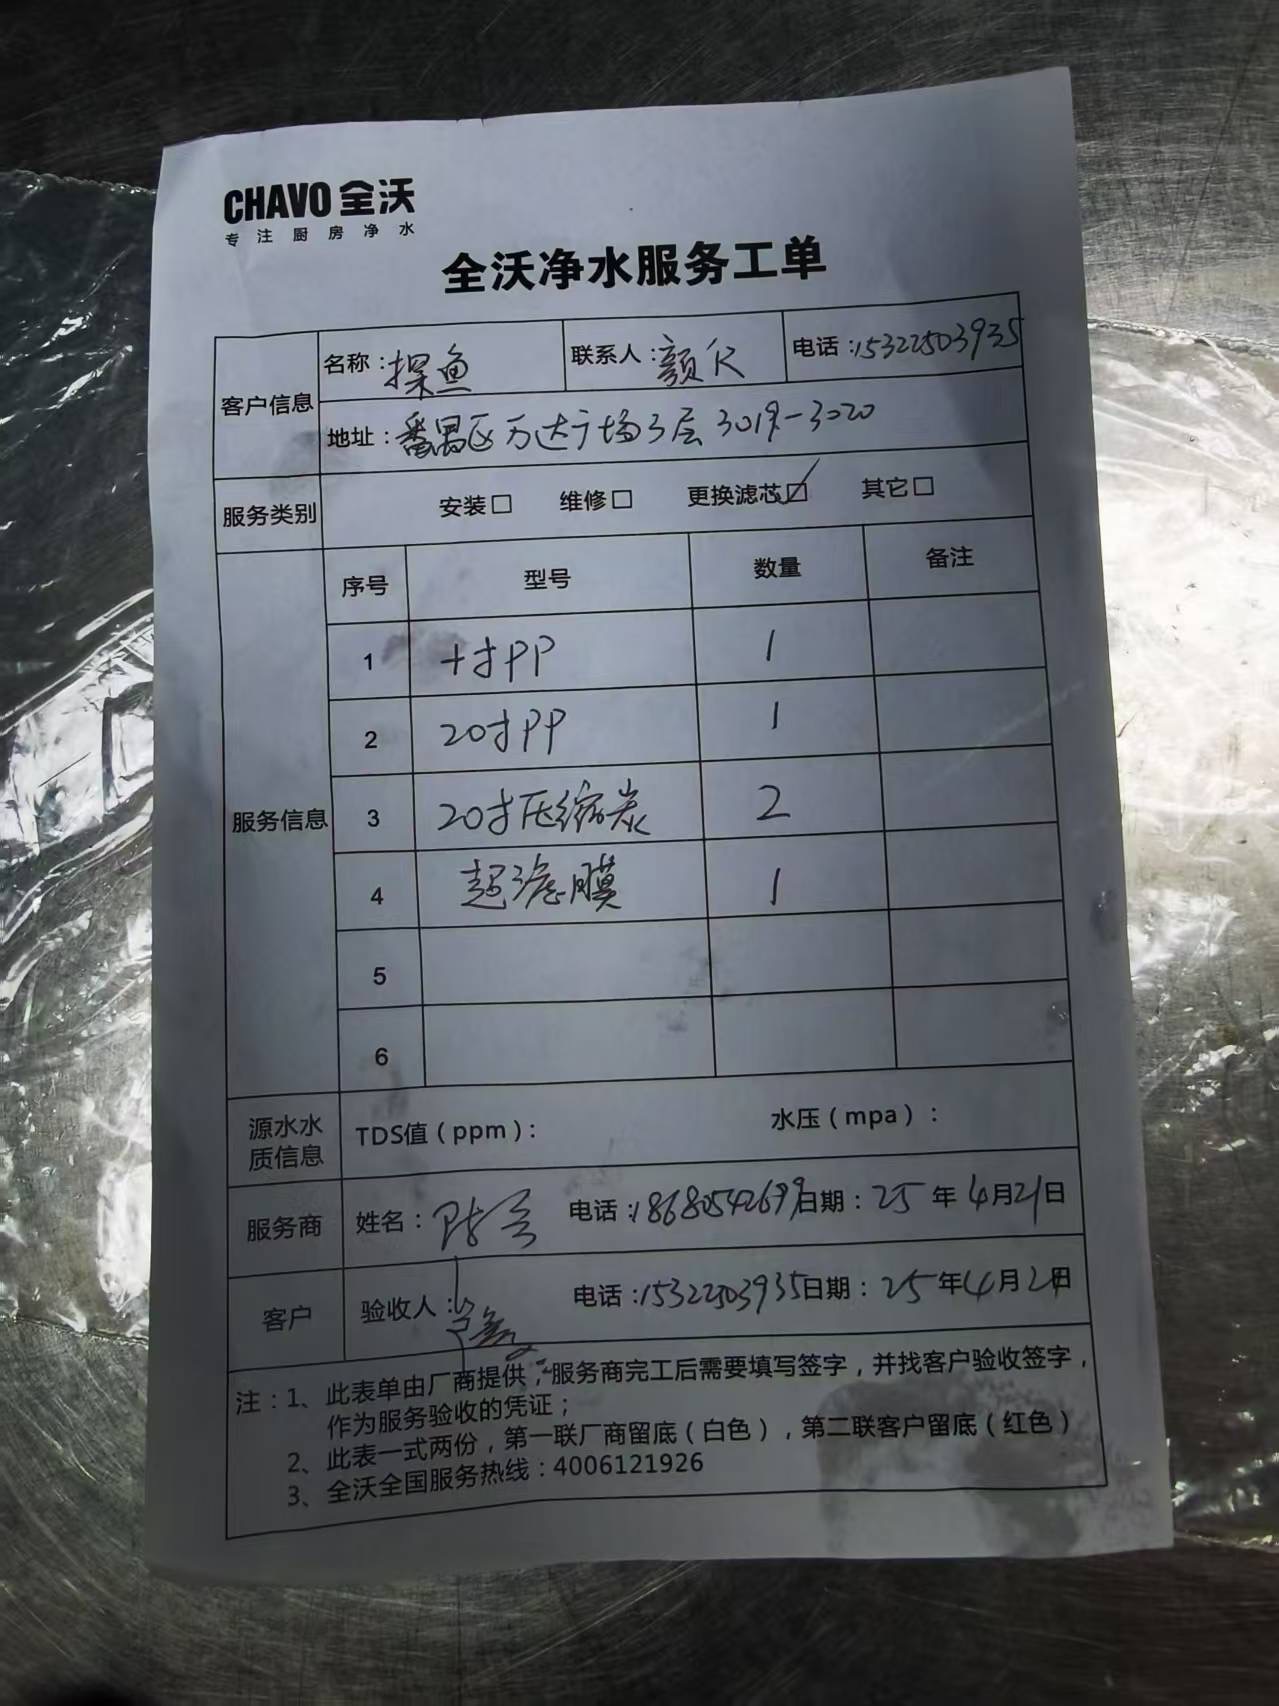 CHAVO 全沃
专注厨房净水
全沃净水服务工单
客户信息
名称：探鱼
联系人：颜
电话：15322503935
地址：番禺区万达广场3层 3019-3020
服务类别
安装□ 维修□ 更换滤芯☑ 其它□
服务信息
序号 型号 数量 备注
1 十寸PP 1
2 20寸PP 1
3 20寸压缩炭 2
4 超滤膜 1
5
6
源水水质信息
TDS值（ppm）： 水压（mpa）：
服务商 姓名： 电话：18680542699 日期：25年4月21日
客户 验收人： 电话：15322503935 日期：25年4月21日
注：1、此表单由厂商提供，服务商完工后需要填写签字，并找客户验收签字，
作为服务验收的凭证；
2、此表一式两份，第一联厂商留底（白色），第二联客户留底（红色）
3、全沃全国服务热线：4006121926